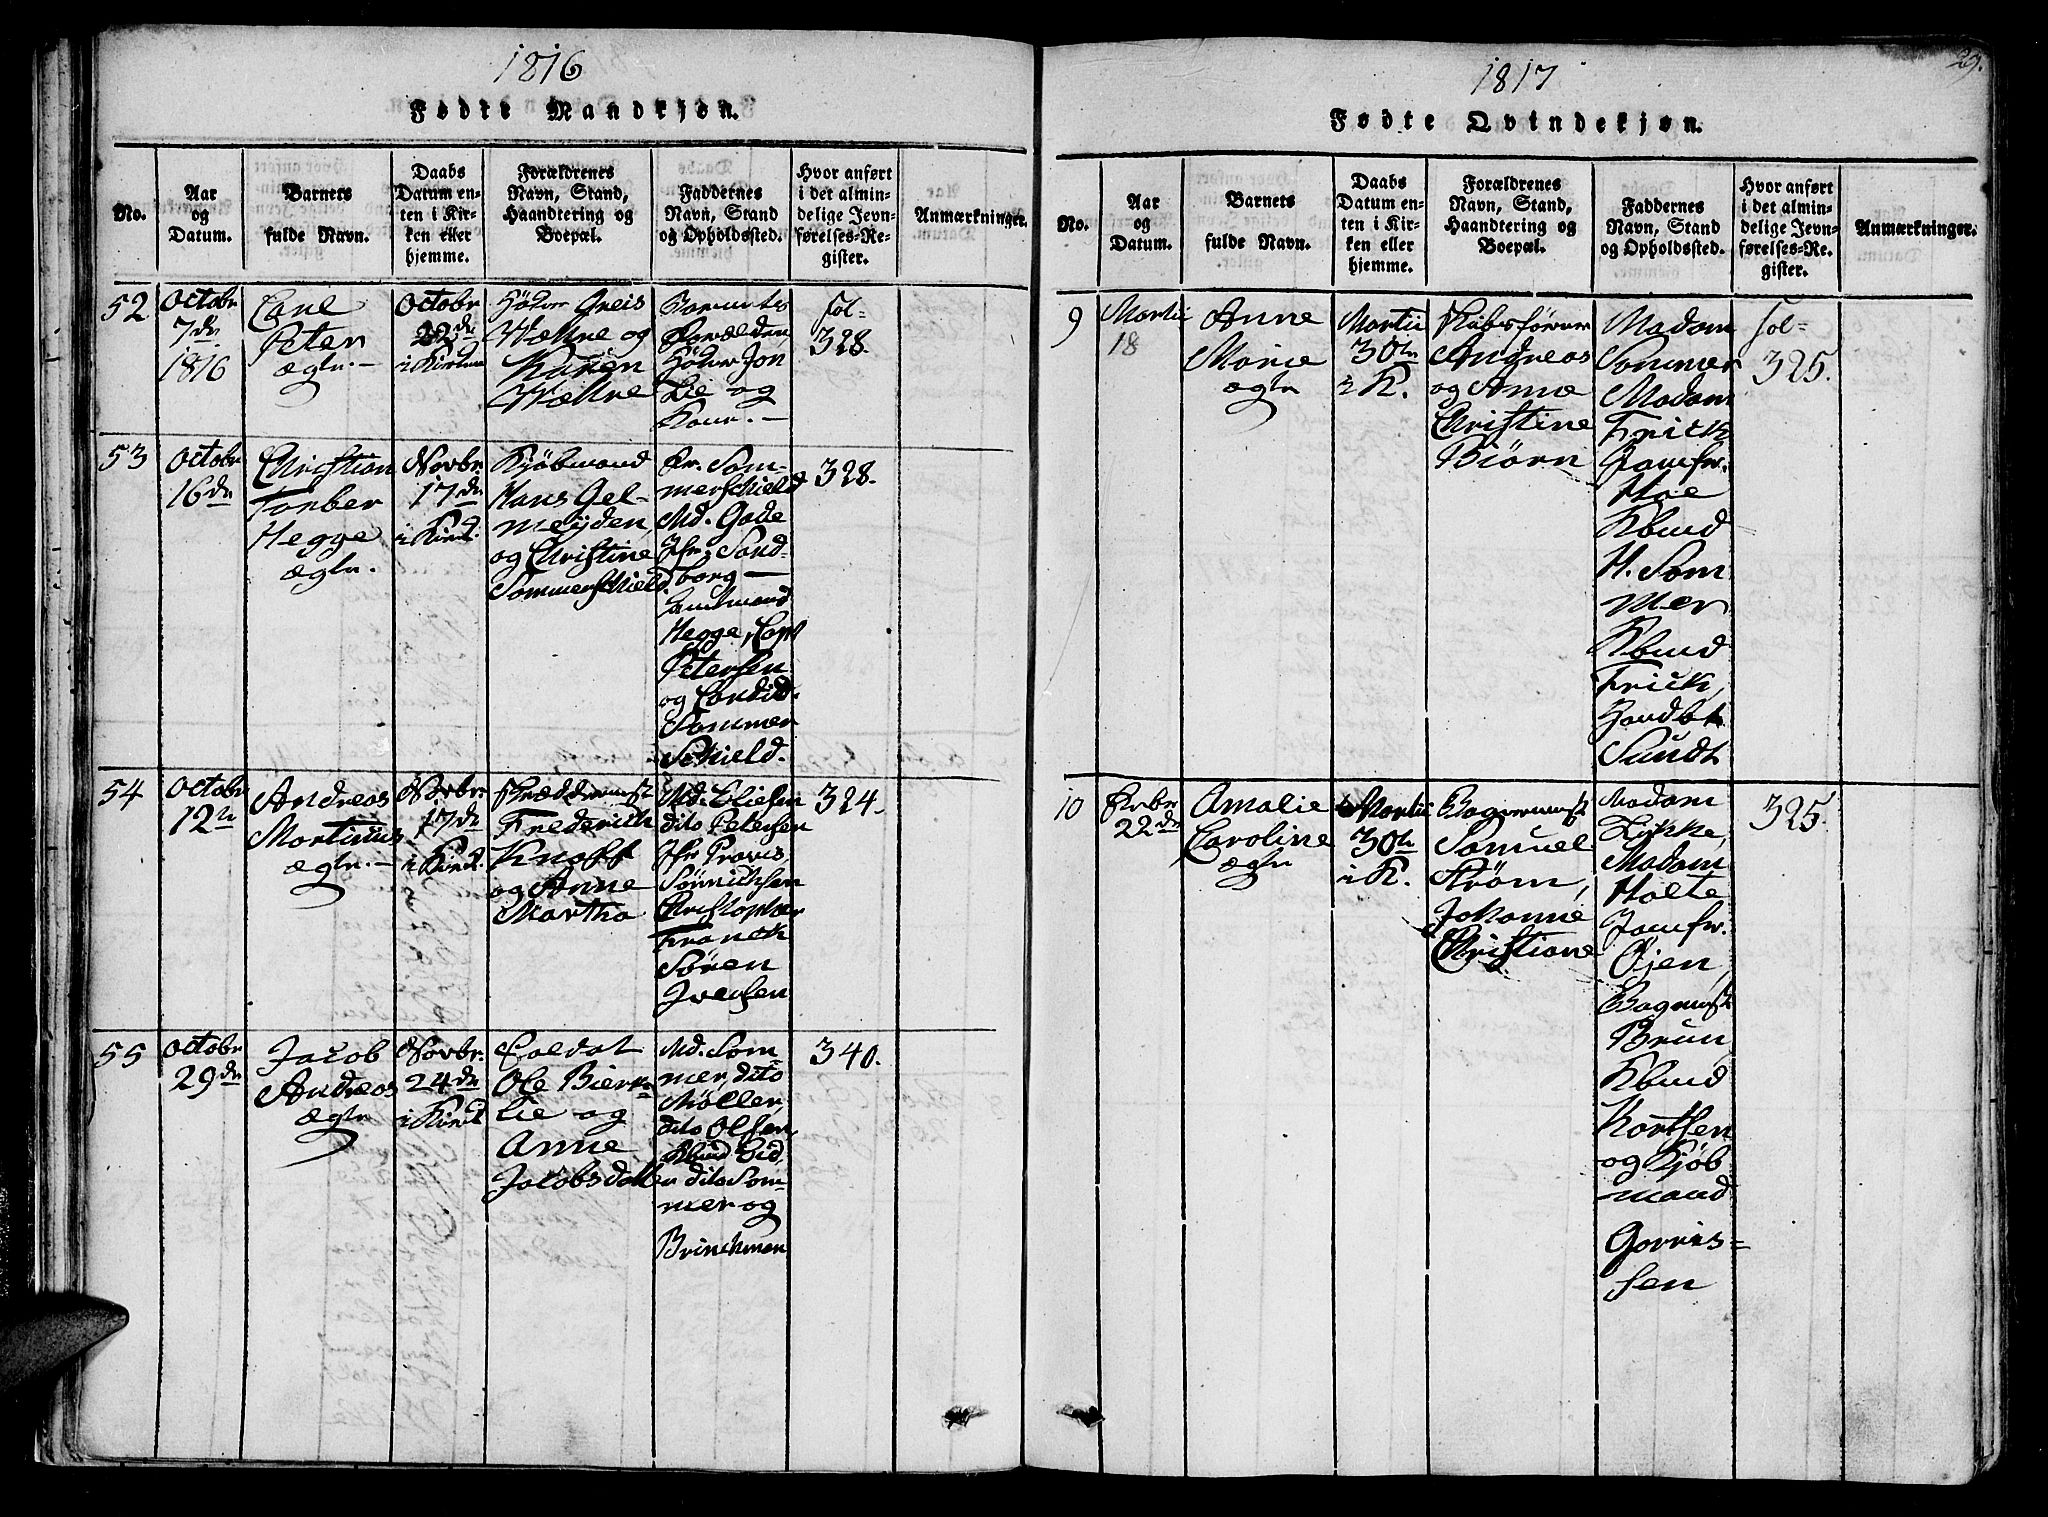 1816
Fødte Mandkjøn.
No.
Aar
og
Datum.
Barnets
fulde Navn.
Daabs
Datum en-
ten i Kir-
ken eller
hjemme.
Forældrenes
Navn, Stand,
Haandtering og
Boepæl.
Faddernes
Navn, Stand
og Opholdssted.
Hvor anført
i det almin-
delige Jevn-
førelses-Re-
gister.
Anmærkninger.
52
Octobr
7de
1816
Carl
Peter
ægte.
Octobr
i Kirken
Greis
og
Karen
Forældre
Jon
Lie og
Kone.
fol-
328.
53
Octobr
16de
Christian
Hegge
ægte.
Novbr.
17de
i Kirk.
Kjöbmand
Hans Gel-
meÿden,
og Christine
Sommerschield.
Fr. Som-
merschield
Md. Gade
Jfr. Sand-
borg
Hegge, Capt
Petersen
og Candid.
Sommer
Schield.
328.
54
Octobr
12te
Andreas
Martinus
ægte.
Novbr.
17de
i Kirk.
Frederich
Knoff
og Anne
Martha
Md. Eliesen
dito Petersen
Jfr
Christopher
Franck
Sören
Iversen
324.
55
Octobr
29de
Jacob
Andreas
ægte
Novbr.
24de
i Kirk.
Soldat
Ole Bierke-
lie og
Anne
Jacobsdatter
Md. Som-
mer, dito
Møller,
dito Olsen,
dito Som-
mer og
Brinchman
340.
1817
29.
Fødte Qvindekjøn.
No.
Aar
og
Datum.
Barnets
fulde Navn.
Daabs
Datum en-
ten i Kir-
ken eller
hjemme.
Forældrenes
Navn, Stand,
Haandtering og
Boepæl.
Faddernes
Navn, Stand
og Opholdssted.
Hvor anført
i det almin-
delige Jevn-
førelses-Re-
gister.
Anmærkninger.
9
Martii
18
Anne
Marie
ægte
Martii
30te
i K.
Skibsfører
Andreas
og Anne
Christine
Biørn
Madam
Sommer
Madam
Frick
Jomfr.
Hoe
Kbmd
H. Som
mer
Kbmd
Frick,
Sundt
fol-
325.
10
Febr
22de
Amalie
Caroline
ægte
Martii
30te
i K.
Bagermest
Samuel
Strøm,
Johanne
Christiane
Madam
Lykke,
Madam
Holte
Jomfr.
Øjen,
Bagermst
Brun,
Kbmd
Kortsen
og Kjöb
mand
Gorris=
sen
325.